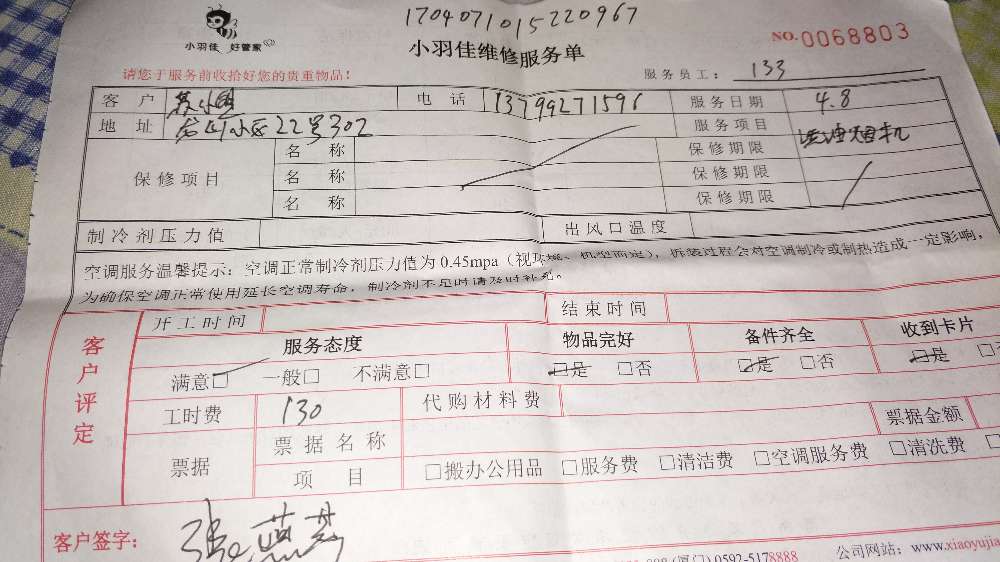 1704071015220967
小羽佳 好管家
小羽佳维修服务单
NO.0068803
请您于服务前收拾好您的贵重物品!
服务员工: 133
客户 电话 13799271596 服务日期 4.8
地址 小区22号302 服务项目 油烟机
保修项目 名称 保修期限
名称 保修期限
名称 保修期限
制冷剂压力值 出风口温度
空调服务温馨提示:空调正常制冷剂压力值为0.45mpa(视环境、机型而定),拆装过程会对空调制冷或制热造成一定影响,
为确保空调正常使用延长空调寿命,制冷剂不足时请及时补充。
客户评定
开工时间 结束时间
服务态度 物品完好 备件齐全 收到卡片
满意□ 一般□ 不满意□ □是 □否 □是 □否 □是
工时费 130 代购材料费
票据 票据名称 票据金额
项目 □搬办公用品 □服务费 □清洁费 □空调服务费 □清洗费
客户签字:
(厦门) 0592-5178888 公司网站:www.xiaoyujia